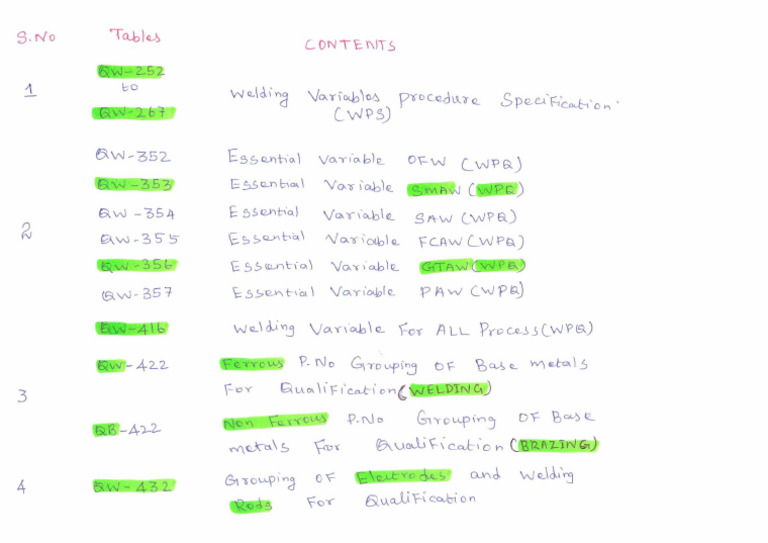 S.No Tables CONTENTS
QW-252
1 to Welding Variables Procedure Specification.
QW-267 (WPS)
QW-352 Essential Variable OFW (WPQ)
QW-353 Essential Variable SMAW (WPQ)
QW-354 Essential Variable SAW (WPQ)
2 QW-355 Essential Variable FCAW (WPQ)
QW-356 Essential Variable GTAW (WPQ)
QW-357 Essential Variable PAW (WPQ)
QW-416 Welding Variable For ALL Process (WPQ)
QW-422 Ferrous P.No Grouping OF Base metals
3 For Qualification (WELDING)
QB-422 Non Ferrous P.No Grouping OF Base
metals For Qualification (BRAZING)
4 QW-432 Grouping OF Electrodes and Welding
Rods For Qualification